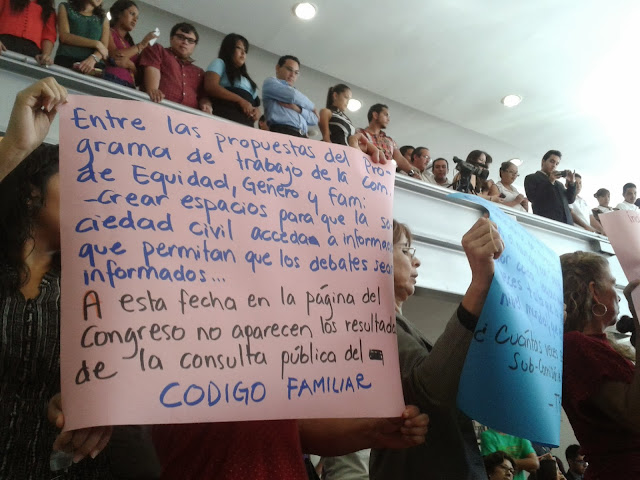 Entre las propuestas del Pro-
grama de trabajo de la Com.
de Equidad, Género y Fam:
-Crear espacios para que la so
ciedad civil acceda a informac
que permitan que los debates sea
informados...
A esta fecha en la página del
Congreso no aparecen los resultado
de la consulta pública del
CODIGO FAMILIAR
¿Cuántas veces
Sub-Comisi